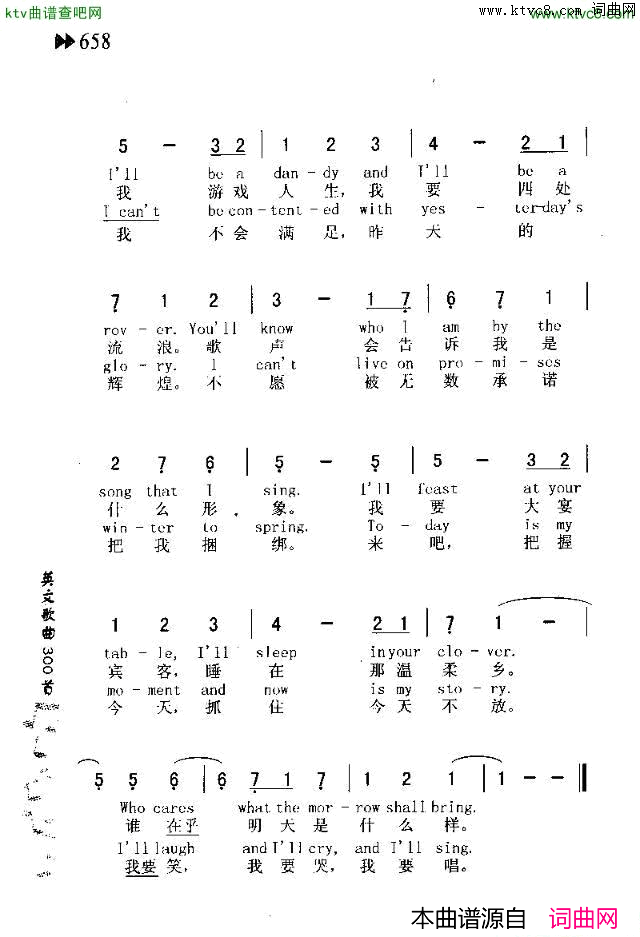 ktv曲谱查吧网
www.ktvc8.com 词曲网
www.ktvc8.com
658
5 - 3 2 | 1 2 3 | 4 - 2 1 |
I'll be a dan-dy and I'll be a
我 游戏 人 生,我 要 四处
I can't be con-tent-ed with yes-ter-day's
我 不会 满 足,昨 天 的
7 1 2 | 3 - 1 7 | 6 7 1 |
rov-er. You'll know who I am by the
流 浪。歌 声 会告 诉 我 是
glo-ry. I can't live on pro-mi-ses
辉 煌。不 愿 被无 数 承 诺
2 7 6 | 5 - 5 | 5 - 3 2 |
song that I sing. I'll feast at your
什 么 形 象。 我 要 大 宴
win-ter to spring. To-day is my
把 我 捆 绑。 来 吧, 把 握
1 2 3 | 4 - 2 1 | 7 1 - |
tab-le, I'll sleep in your clo-ver.
宾 客,睡 在 那 温 柔 乡。
mo-ment and now is my sto-ry.
今 天,抓 住 今天 不 放。
5 5 6 | 6 7 1 7 | 1 2 1 | 1 - - ‖
Who cares what the mor-row shall bring.
谁 在乎 明天 是 什 么 样。
I'll laugh and I'll cry, and I'll sing.
我要 笑, 我 要 哭,我 要 唱。
英文歌曲300首
本曲谱源自 词曲网